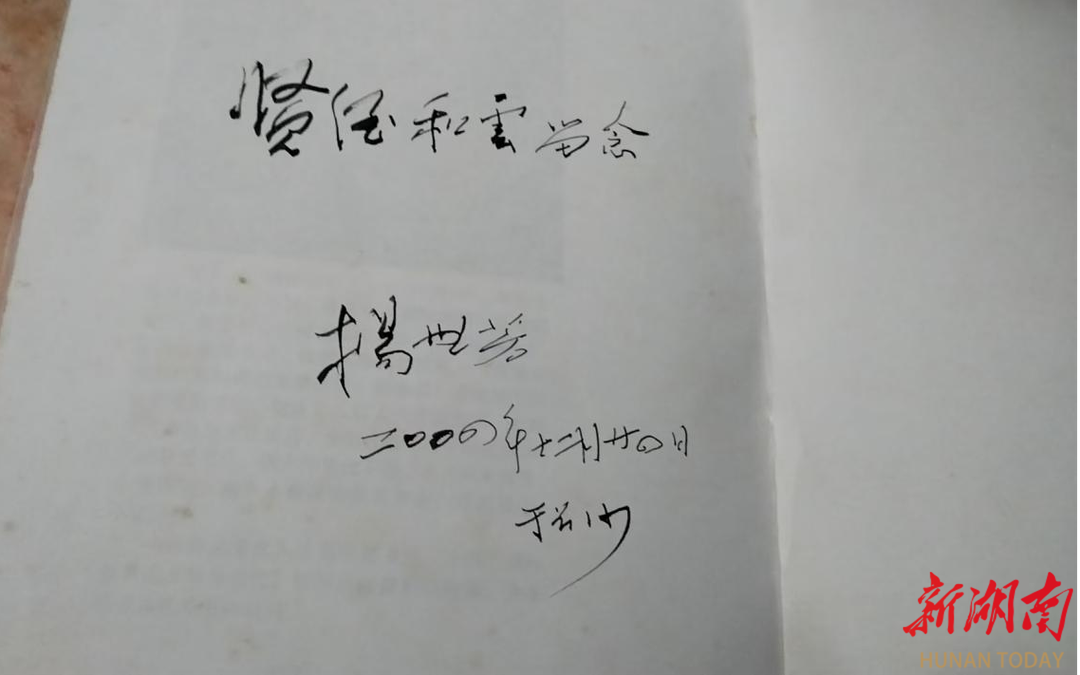 贤侄和雲留念
楊世芳
二00四年十二月廿四日
于长沙
新湖南
HUNAN TODAY